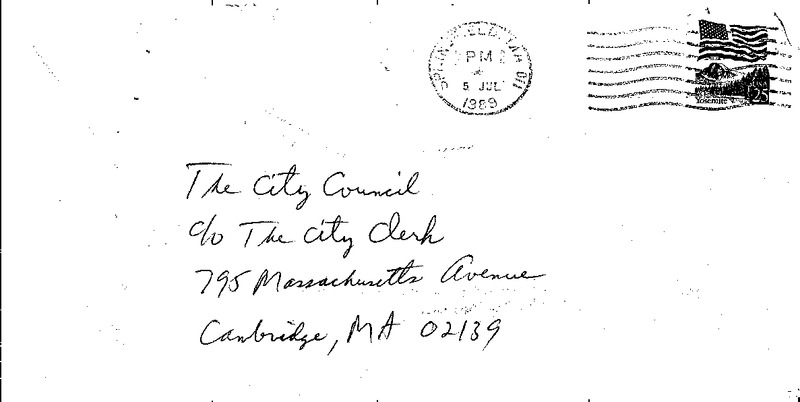 SPRINGFIELD, MA 011
PM
5 JUL
1989
Yosemite
25
The City Council
c/o The City Clerk
795 Massachusetts Avenue
Cambridge, MA 02139